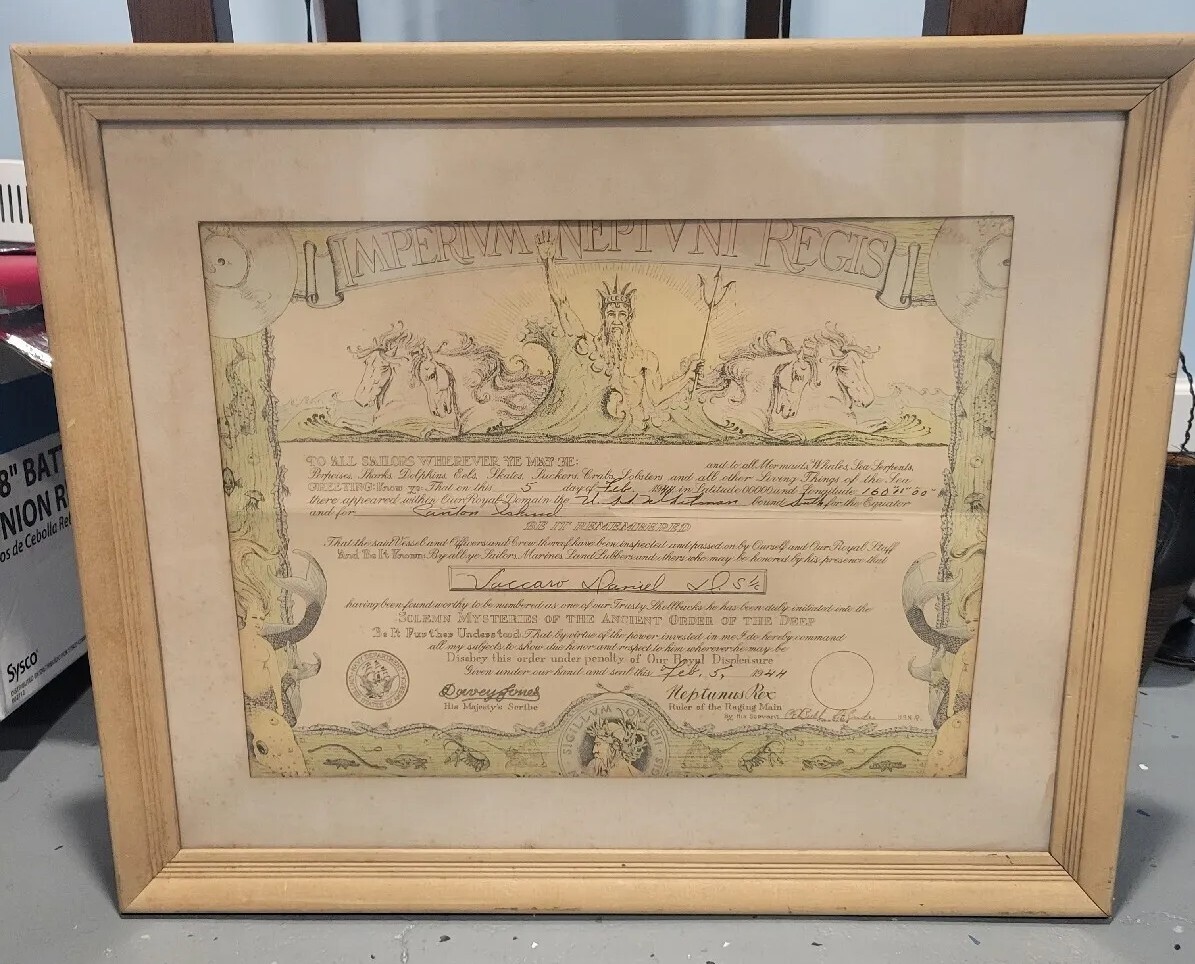 IMPERIVM NEPTVNI REGIS
TO ALL SAILORS WHEREVER YE MAY BE: and to all Mermaids, Whales, Sea Serpents,
Porpoises, Sharks, Dolphins, Eels, Skates, Suckers, Crabs, Lobsters and all other Living Things of the Sea
GREETING: Know ye: That on this 5 day of Feb 1944 in Latitude 00000 and Longitude 160° 21' 00"
there appeared within Our Royal Domain the bound South for the Equator
and for Canton Island
BE IT REMEMBERED
That the said Vessel and Officers and Crew thereof have been inspected and passed on by Ourself and Our Royal Staff
And Be It Known: By all ye Sailors, Marines, Land Lubbers and others who may be honored by his presence that
Vaccaro Daniel D. S 1/c
having been found worthy to be numbered as one of our Trusty Shellbacks he has been duly initiated into the
SOLEMN MYSTERIES OF THE ANCIENT ORDER OF THE DEEP
Be It Further Understood: That by virtue of the power invested in me I do hereby command
all my subjects to show due honor and respect to him wherever he may be
Disobey this order under penalty of Our Royal Displeasure
Given under our hand and seal this Feb, 5, 1944
Davey Jones
His Majesty's Scribe
Neptunus Rex
Ruler of the Raging Main
By His Servant U.S.N.
NAVY DEPARTMENT
SIGILLVM
REGIS
8" BAT
NION R
os de Cebolla Re
Sysco